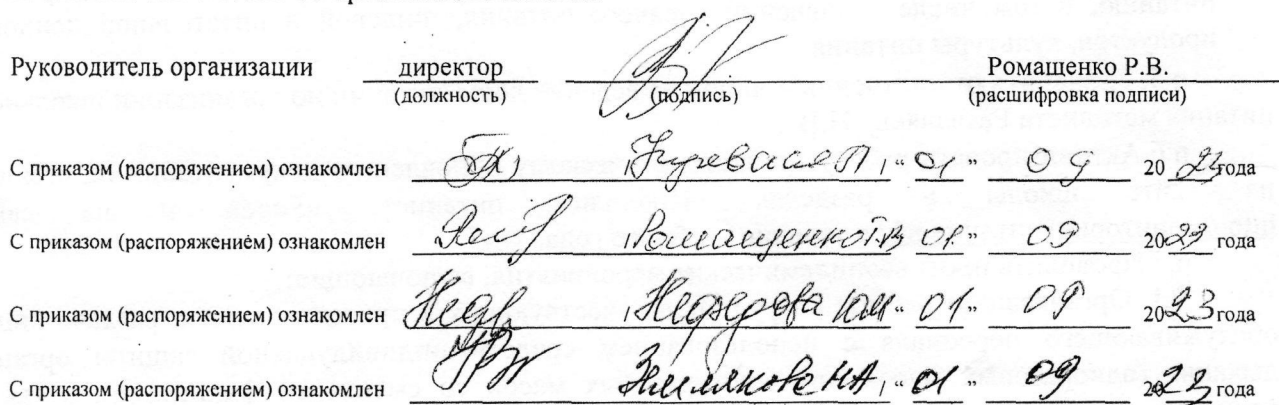 Руководитель организации директор Ромащенко Р.В.
(должность) (подпись) (расшифровка подписи)
С приказом (распоряжением) ознакомлен "01" 09 2023 года
С приказом (распоряжением) ознакомлен Ромащенко Т.В. 01" 09 2023 года
С приказом (распоряжением) ознакомлен Нефедова Ю.И. "01" 09 2023 года
С приказом (распоряжением) ознакомлен Зимлякова Н.А. "01" 09 2023 года